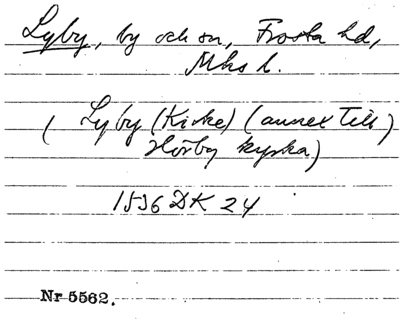 Lyby, by och sn, Frosta hd,
Mhs l.
(Lyby (Kirke) (annex till)
Hörby kyrka)
1536 DK 24
Nr 5562.